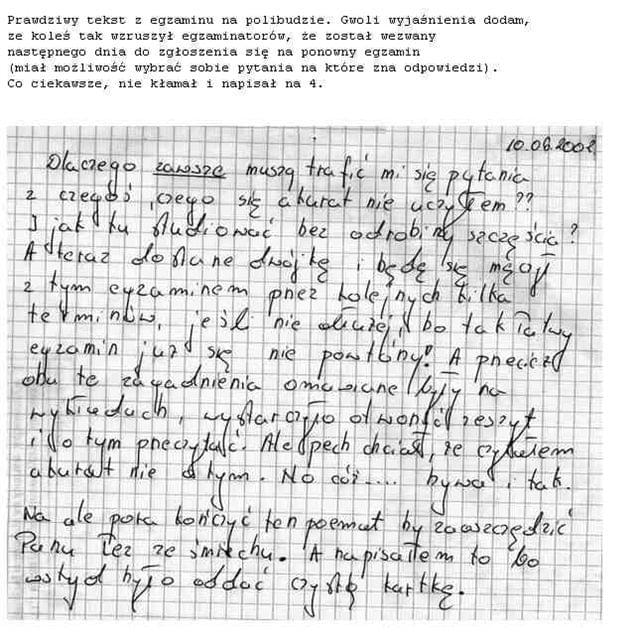 Prawdziwy tekst z egzaminu na polibudzie. Gwoli wyjaśnienia dodam,
ze koleś tak wzruszył egzaminatorów, że został wezwany
następnego dnia do zgłoszenia się na ponowny egzamin
(miał możliwość wybrać sobie pytania na które zna odpowiedzi).
Co ciekawsze, nie kłamał i napisał na 4.
10.06.2002
Dlaczego zawsze muszą trafić mi się pytania
z czegoś, czego się akurat nie uczyłem??
I jak tu studiować bez odrobiny szczęścia?
A teraz dostanę dwójkę i będę się męczył
z tym egzaminem przez kolejnych kilka
terminów, jeśli nie dłużej, bo tak łatwy
egzamin już się nie powtórzy! A przecież
oba te zagadnienia omawiane były na
wykładach, wystarczyło otworzyć zeszyt
i o tym przeczytać. Ale pech chciał, że czytałem
akurat nie o tym. No cóż.... bywa i tak.
No ale pora kończyć ten poemat by zaoszczędzić
Panu łez ze śmiechu. A napisałem to bo
wstyd było oddać czystą kartkę.